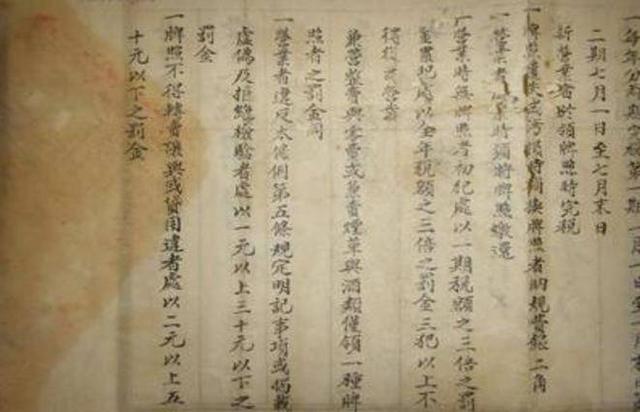 一每年分兩期
二期七月一日至七月末日
新營業者於領牌照時完稅
一牌照遺失或污損時須換牌照者納規費銀二角
一營業者 業時須將牌照繳還
一營業時無牌照者初犯處以一期稅額之三倍之罰
金 犯處以全年稅額之三倍之罰金三犯以上不
得
兼營整賣與零賣或兼賣煙草與酒類僅領一種牌
照者之罰金同
一營業者違反本條例第五條規定明記事項或揭載
虛偽及拒絕檢驗者處以一元以上三十元以下之
罰金
一牌照不得轉賣讓與或貸用違者處以二元以上五
十元以下之罰金